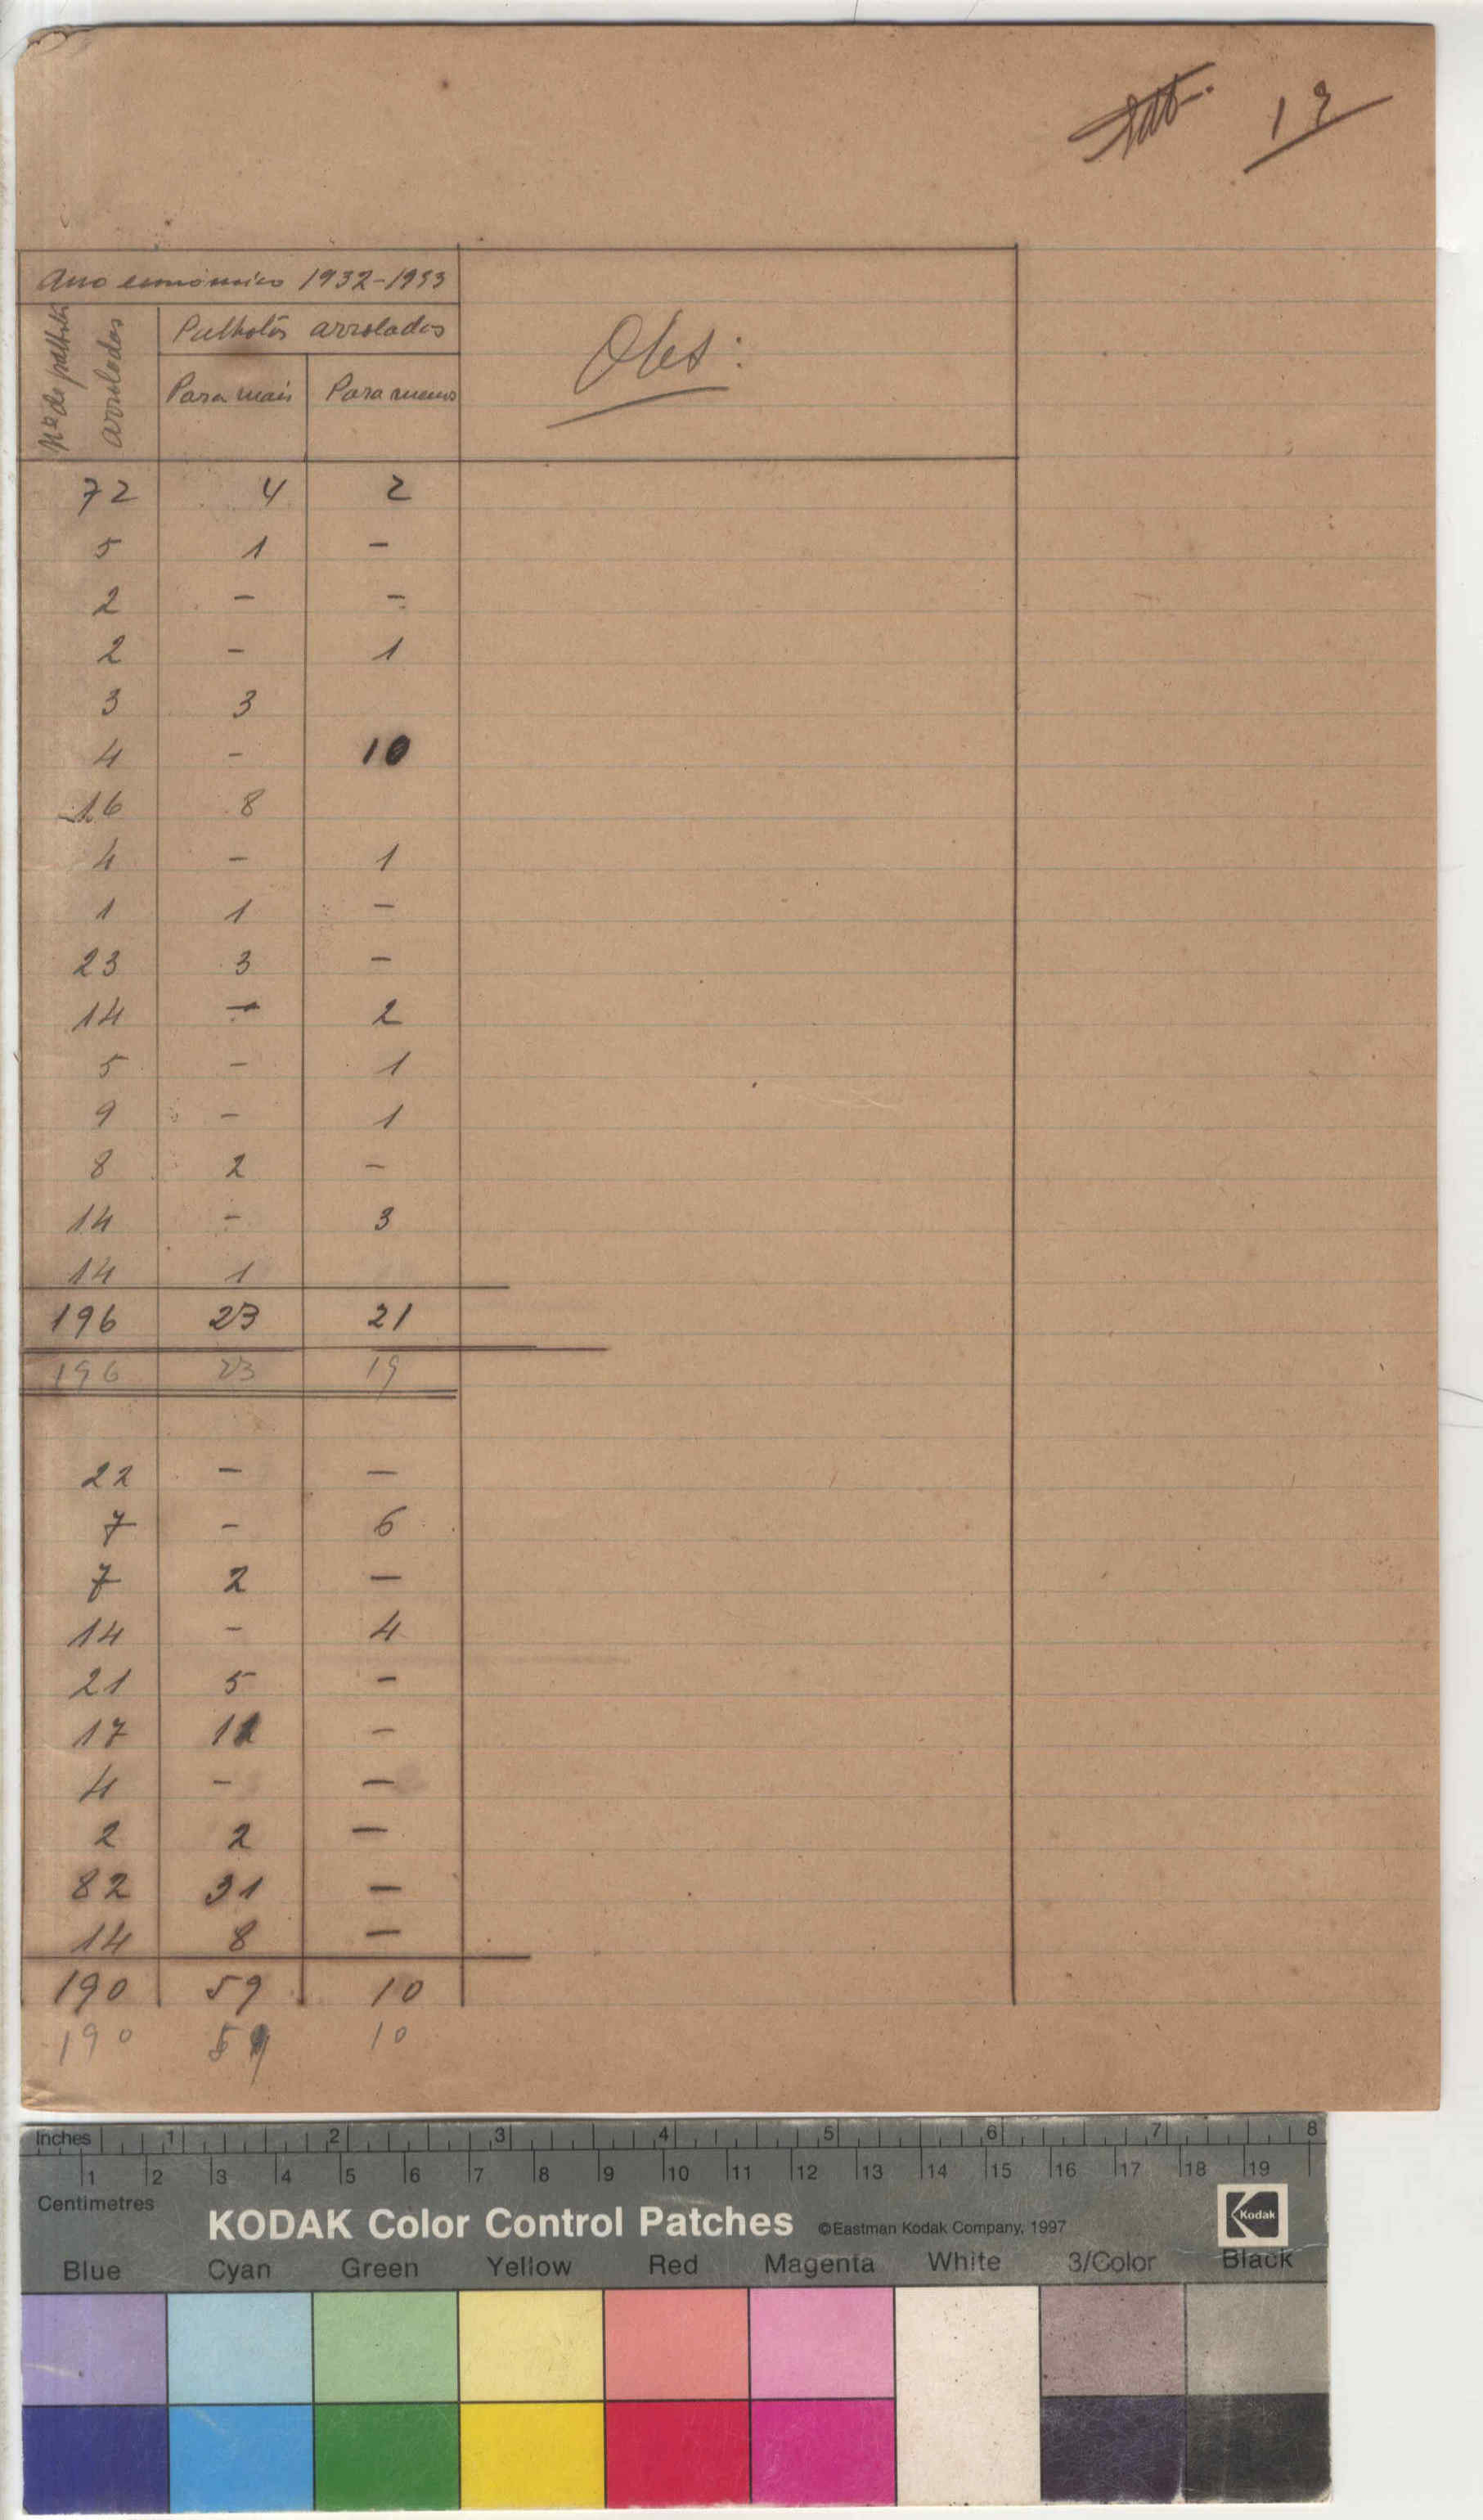 12
Ano económico 1932-1933
Nº de palhotas arroladas
Palhotas arroladas
Para mais Para menos
Obs:
72 4 2
5 1 -
2 - -
2 - 1
3 3
4 - 10
16 8
4 - 1
1 1 -
23 3 -
14 - 2
5 - 1
9 - 1
8 2 -
14 - 3
14 1
196 23 21
196 23 19
22 - -
7 - 6
7 2 -
14 - 4
21 5 -
17 11 -
4 - -
2 2 -
82 31 -
14 8 -
190 59 10
190 59 10
Inches 1 2 3 4 5 6 7 8
1 2 3 4 5 6 7 8 9 10 11 12 13 14 15 16 17 18 19
Centimetres
KODAK Color Control Patches ©Eastman Kodak Company, 1997 Kodak
Blue Cyan Green Yellow Red Magenta White 3/Color Black